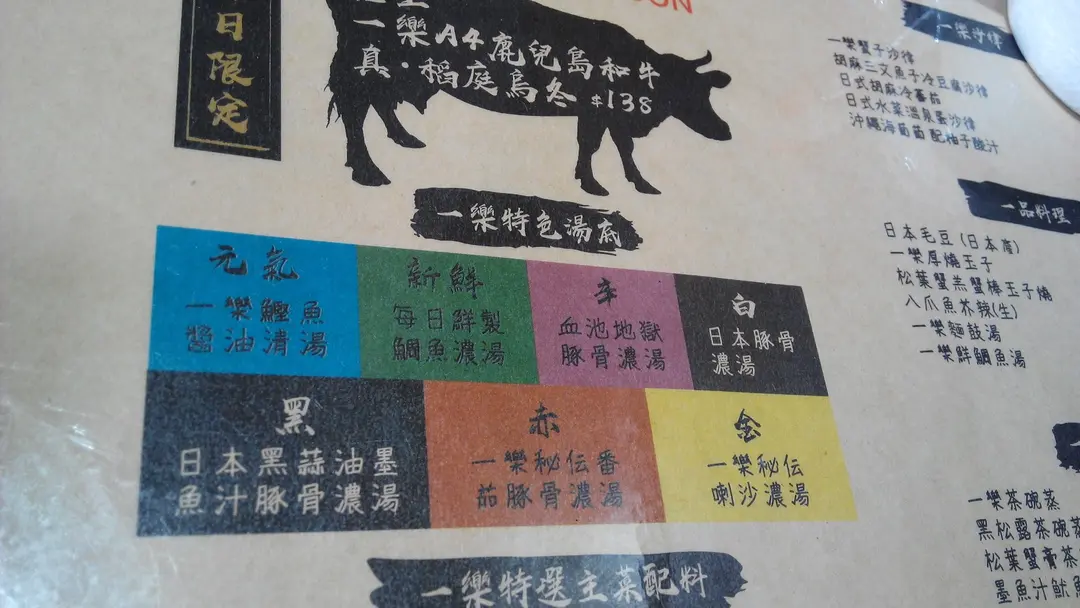 日限定
一樂A4鹿兒島和牛
真·稻庭烏冬 $138
一樂特色湯底
元氣
一樂鰹魚
醬油清湯
新鮮
每日鮮製
鯛魚濃湯
辛
血池地獄
豚骨濃湯
白
日本豚骨
濃湯
黑
日本黑蒜油墨
魚汁豚骨濃湯
赤
一樂秘伝番
茄豚骨濃湯
金
一樂秘伝
喇沙濃湯
一樂特選主菜配料
一樂沙律
一樂蟹子沙律
胡麻三文魚子冷豆腐沙律
日式胡麻冷蕃茄
日式水菜溫泉蛋沙律
沖繩海葡萄配柚子酸汁
一品料理
日本毛豆(日本產)
一樂厚燒玉子
松葉蟹羔蟹棒玉子燒
八爪魚芥辣(生)
一樂麵豉湯
一樂鮮鯛魚湯
一樂茶碗蒸
黑松露茶碗蒸
松葉蟹膏茶
墨魚汁魷魚